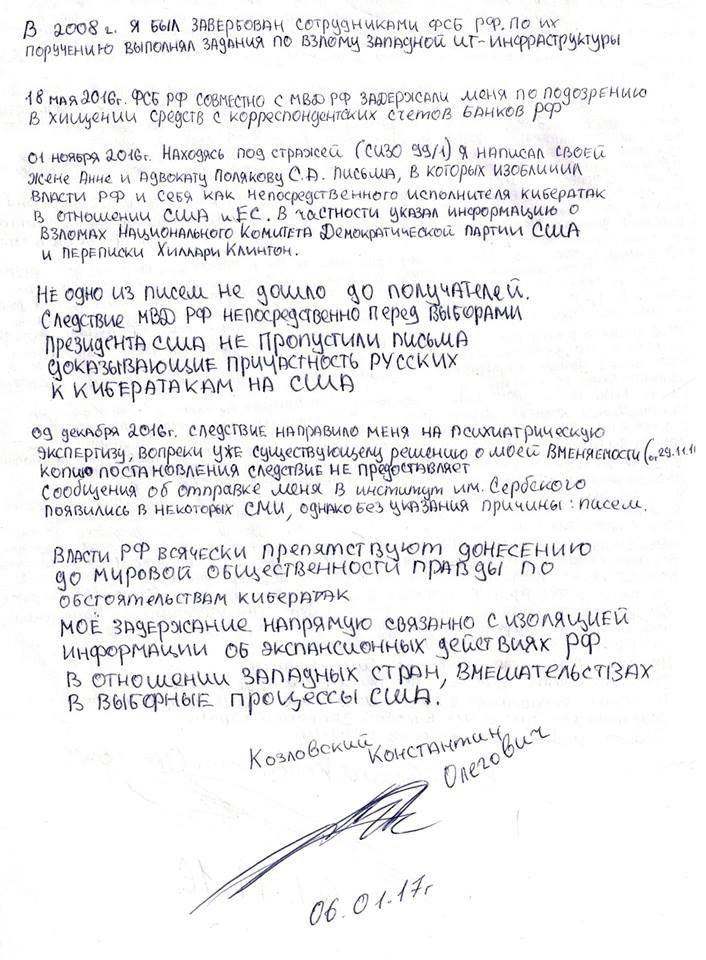 В 2008 г. я был завербован сотрудниками ФСБ РФ. По их
поручению выполнял задания по взлому западной ИТ-инфраструктуры
18 мая 2016г. ФСБ РФ совместно с МВД РФ задержали меня по подозрению
в хищении средств с корреспондентских счетов банков РФ
01 ноября 2016г. Находясь под стражей (СИЗО 99/1) я написал своей
жене Анне и адвокату Полякову С.А. письма, в которых изобличил
власти РФ и себя как непосредственного исполнителя кибератак
в отношении США и ЕС. В частности указал информацию о
взломах Национального Комитета Демократической партии США
и переписки Хиллари Клинтон.
Не одно из писем не дошло до получателей.
Следствие МВД РФ непосредственно перед выборами
Президента США не пропустили письма
доказывающие причастность русских
к кибератакам на США
09 декабря 2016г. следствие направило меня на психиатрическую
экспертизу, вопреки уже существующему решению о моей вменяемости (от 29.11.1
копию постановления следствие не предоставляет
Сообщения об отправке меня в институт им. Сербского
появились в некоторых СМИ, однако без указания причины: писем.
Власти РФ всячески препятствуют донесению
до мировой общественности правды по
обстоятельствам кибератак
Моё задержание напрямую связанно с изоляцией
информации об экспансионных действиях РФ
в отношении западных стран, вмешательствах
в выборные процессы США.
Козловский Константин
Олегович
06.01.17г